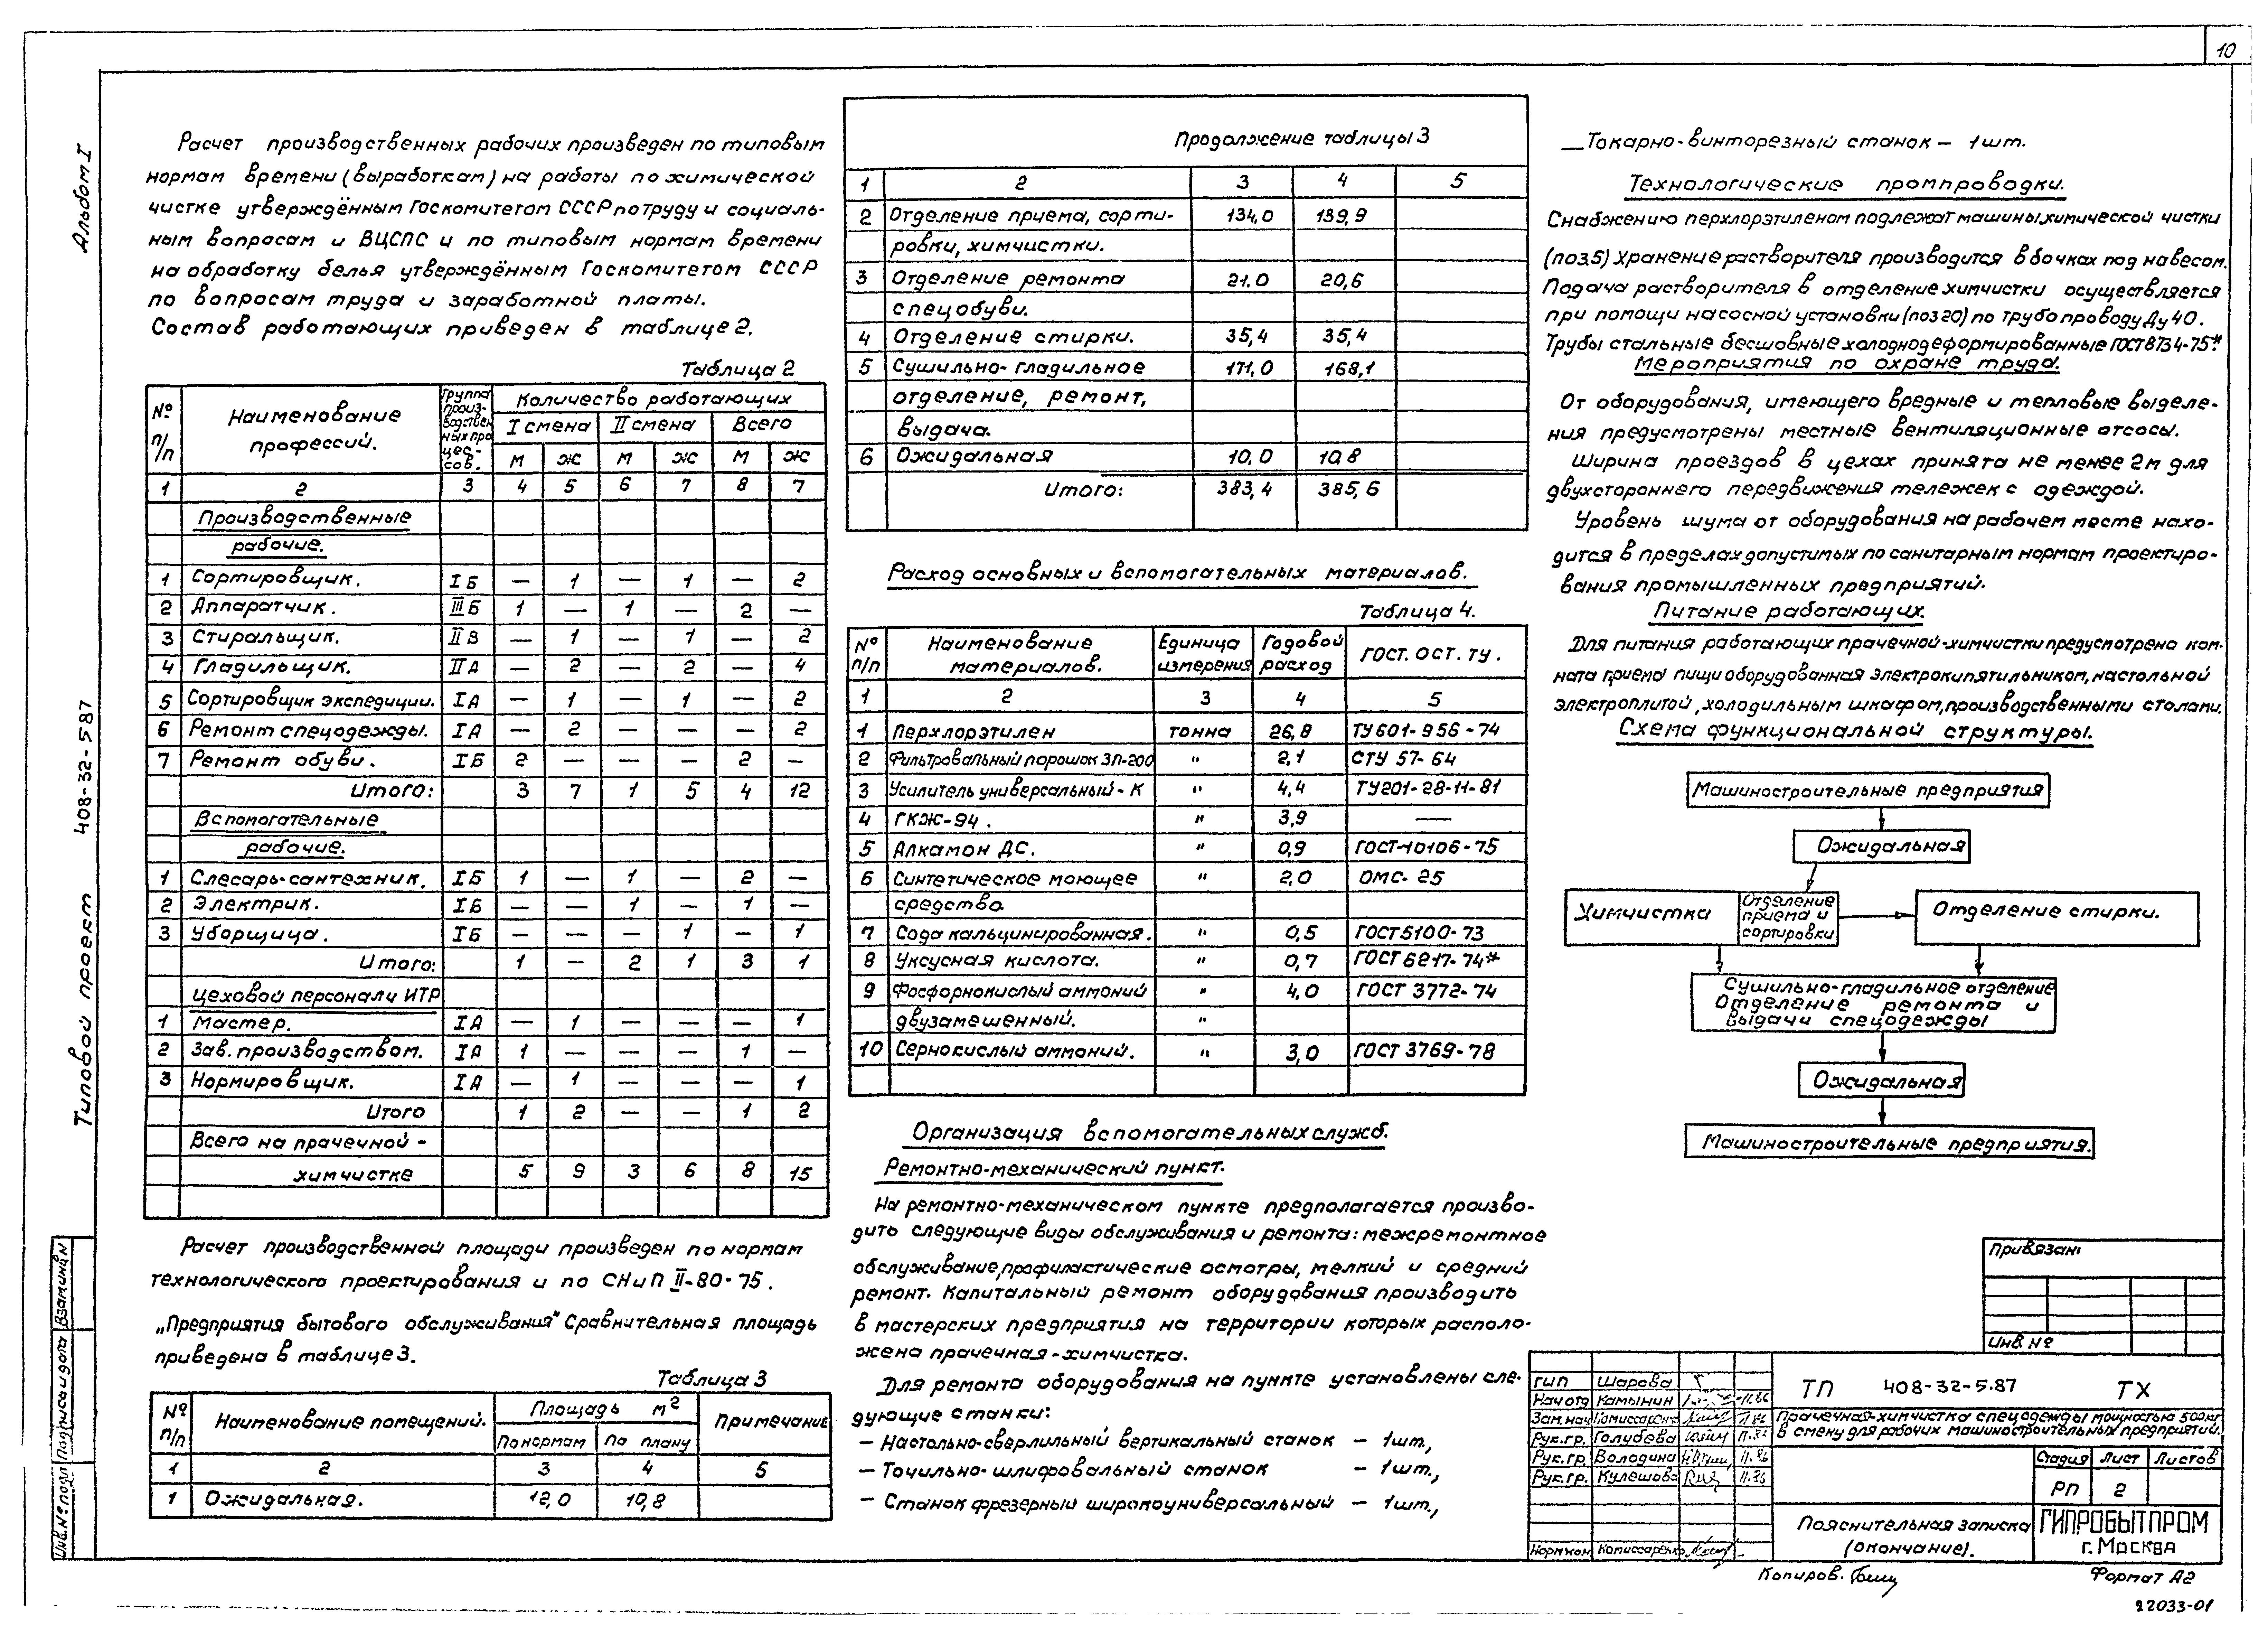 10
Альбом I
Типовой проект 408-32-5.87
Расчет производственных рабочих произведен по типовым
нормам времени (выработкам) на работы по химической
чистке утверждённым Госкомитетом СССР по труду и социаль-
ным вопросам и ВЦСПС и по типовым нормам времени
на обработку белья утверждённым Госкомитетом СССР
по вопросам труда и заработной платы.
Состав работающих приведен в таблице 2.
Таблица 2
№ п/п | Наименование профессий. | Группа производственных процессов. | Количество работающих
I смена | II смена | Всего
м | ж | м | ж | м | ж
1 | 2 | 3 | 4 | 5 | 6 | 7 | 8 | 7
Производственные
рабочие.
1 | Сортировщик. | I Б | — | 1 | — | 1 | — | 2
2 | Аппаратчик. | III Б | 1 | — | 1 | — | 2 | —
3 | Стиральщик. | II В | — | 1 | — | 1 | — | 2
4 | Гладильщик. | II А | — | 2 | — | 2 | — | 4
5 | Сортировщик экспедиции. | I А | — | 1 | — | 1 | — | 2
6 | Ремонт спецодежды. | I А | — | 2 | — | — | — | 2
7 | Ремонт обуви. | I Б | 2 | — | — | — | 2 | —
Итого: | 3 | 7 | 1 | 5 | 4 | 12
Вспомогательные
рабочие.
1 | Слесарь-сантехник. | I Б | 1 | — | 1 | — | 2 | —
2 | Электрик. | I Б | — | — | 1 | — | 1 | —
3 | Уборщица. | I Б | — | — | — | 1 | — | 1
Итого: | 1 | — | 2 | 1 | 3 | 1
Цеховой персонал и ИТР
1 | Мастер. | I А | — | 1 | — | — | — | 1
2 | Зав. производством. | I А | 1 | — | — | — | 1 | —
3 | Нормировщик. | I А | — | 1 | — | — | — | 1
Итого | 1 | 2 | — | — | 1 | 2
Всего на прачечной -
химчистке | 5 | 9 | 3 | 6 | 8 | 15
Расчет производственной площади произведен по нормам
технологического проектирования и по СНиП II-80-75.
„Предприятия бытового обслуживания" Сравнительная площадь
приведена в таблице 3.
Таблица 3
№ п/п | Наименование помещений. | Площадь м² | Примечание
По нормам | По плану
1 | 2 | 3 | 4 | 5
1 | Ожидальная. | 12,0 | 10,8
Продолжение таблицы 3
1 | 2 | 3 | 4 | 5
2 | Отделение приема, сорти- | 134,0 | 139,9
ровки, химчистки.
3 | Отделение ремонта | 21,0 | 20,6
спецобуви.
4 | Отделение стирки. | 35,4 | 35,4
5 | Сушильно-гладильное | 171,0 | 168,1
отделение, ремонт,
выдача.
6 | Ожидальная | 10,0 | 10,8
Итого: | 383,4 | 385,6
Расход основных и вспомогательных материалов.
Таблица 4.
№ п/п | Наименование материалов. | Единица измерения | Годовой расход | ГОСТ. ОСТ. ТУ.
1 | 2 | 3 | 4 | 5
1 | Перхлорэтилен | тонна | 26,8 | ТУ601-956-74
2 | Фильтровальный порошок ЗП-200 | " | 2,1 | СТУ 57-64
3 | Усилитель универсальный-К | " | 4,4 | ТУ201-28-11-81
4 | ГКЖ-94. | " | 3,9 | —
5 | Алкамон ДС. | " | 0,9 | ГОСТ-10106-75
6 | Синтетическое моющее | " | 2,0 | ОМС-25
средство
7 | Сода кальцинированная. | " | 0,5 | ГОСТ 5100-73
8 | Уксусная кислота. | " | 0,7 | ГОСТ 6217-74*
9 | Фосфорнокислый аммоний | " | 4,0 | ГОСТ 3772-74
двузамешенный. | "
10 | Сернокислый аммоний. | " | 3,0 | ГОСТ 3769-78
Организация вспомогательных служб.
Ремонтно-механический пункт.
На ремонтно-механическом пункте предполагается произво-
дить следующие виды обслуживания и ремонта: межремонтное
обслуживание, профилактические осмотры, мелкий и средний
ремонт. Капитальный ремонт оборудования производить
в мастерских предприятия на территории которых располо-
жена прачечная-химчистка.
Для ремонта оборудования на пункте установлены сле-
дующие станки:
— Настольно-сверлильный вертикальный станок — 1шт,
— Точильно-шлифовальный станок — 1шт,
— Станок фрезерный широкоуниверсальный — 1шт,
— Токарно-винторезный станок — 1шт.
Технологические промпроводки.
Снабжению перхлорэтиленом подлежат машины химической чистки
(поз.5) Хранение растворителя производится в бочках под навесом.
Подача растворителя в отделение химчистки осуществляется
при помощи насосной установки (поз 20) по трубопроводу Ду 40.
Трубы стальные бесшовные холоднодеформированные ГОСТ 8734-75*
Мероприятия по охране труда.
От оборудования, имеющего вредные и тепловые выделе-
ния предусмотрены местные вентиляционные отсосы.
Ширина проездов в цехах принята не менее 2м для
двухстороннего передвижения тележек с одеждой.
Уровень шума от оборудования на рабочем месте нахо-
дится в пределах допустимых по санитарным нормам проектиро-
вания промышленных предприятий.
Питание работающих.
Для питания работающих прачечной-химчистки предусмотрена ком-
ната приема пищи оборудованная электрокипятильником, настольной
электроплитой, холодильным шкафом, производственными столами.
Схема функциональной структуры.
Машиностроительные предприятия
Ожидальная
Химчистка
Отделение
приема и
сортировки
Отделение стирки.
Сушильно-гладильное отделение
Отделение ремонта и
выдачи спецодежды
Ожидальная
Машиностроительные предприятия.
Привязан:
Инв. №
ГИП | Шарова
Нач отд | Камынин | 11.86
Зам. нач | Комиссаренко | 11.86
Рук. гр. | Голубева
Рук. гр | Володина | 11.86
Рук. гр. | Кулешова | 11.86
Нормкон | Комиссаренко
ТП 408-32-5.87 ТХ
Прачечная-химчистка спецодежды мощностью 500кг
в смену для рабочих машиностроительных предприятий.
Стадия | Лист | Листов
РП | 2
Пояснительная записка
(окончание).
ГИПРОБЫТПРОМ
г. Москва
Копиров.
Формат А2
22033-01
Инв. № подл
Подпись и дата
Взам инв. №